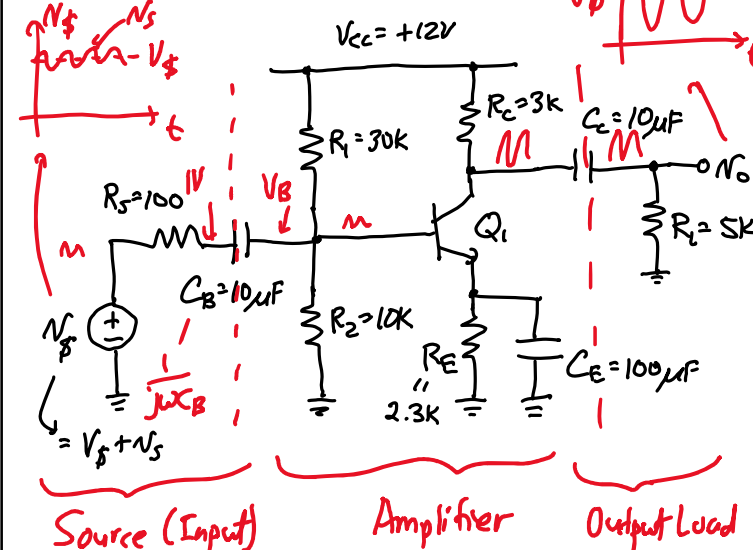 v$
vs
V$
t
VCC = +12V
V$
t
R1 = 30K
RC = 3K
CC = 10μF
vo
RS = 100
1V
VB
Q1
RL = 5K
CB = 10μF
R2 = 10K
v$
1
jωCB
RE
"
2.3K
CE = 100μF
= V$ + vs
Source (Input)
Amplifier
Output Load